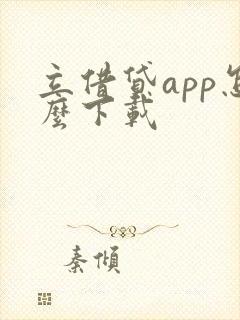 立借贷app怎
麽下載
秦傾